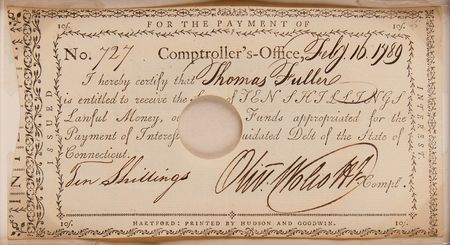 FOR THE PAYMENT OF
10ſ. 10ſ.
No. 727 Comptroller's-Office, Feby. 16. 1789
I hereby certify that Thomas Fuller
is entitled to receive the of TEN SHILLINGS
Lawful Money, Funds appropriated for the
Payment of Interest uidated Debt of the State of
Connecticut.
Ten Shillings Olivr. Wolcott Jr. Compt.
ISSUED
INTEREST.
10ſ. HARTFORD: PRINTED BY HUDSON AND GOODWIN. 10ſ.